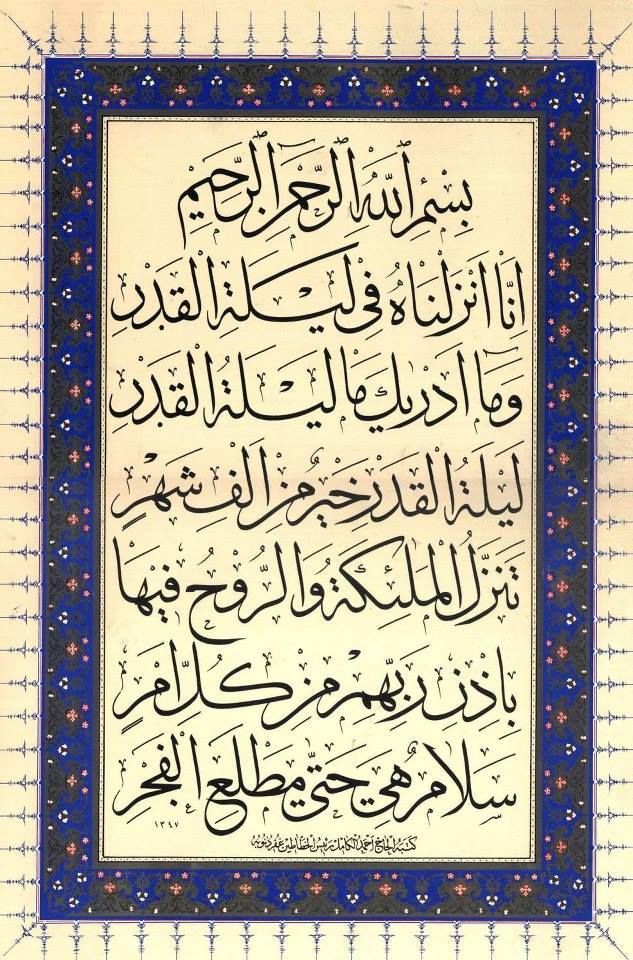 بِسْمِ اللهِ الرَّحْمٰنِ الرَّحِيمِ
اِنَّا اَنْزَلْنَاهُ فِى لَيْلَةِ الْقَدْرِ
وَمَا اَدْرٰيكَ مَا لَيْلَةُ الْقَدْرِ
لَيْلَةُ الْقَدْرِ خَيْرٌ مِنْ اَلْفِ شَهْرٍ
تَنَزَّلُ الْمَلٰئِكَةُ وَالرُّوحُ فِيهَا
بِاِذْنِ رَبِّهِمْ مِنْ كُلِّ اَمْرٍ
سَلَامٌ هِيَ حَتّٰى مَطْلَعِ الْفَجْرِ
كتبه الحاج احمد الكامل رئيس الخطاطين غفر ذنوبه
١٣٤٧